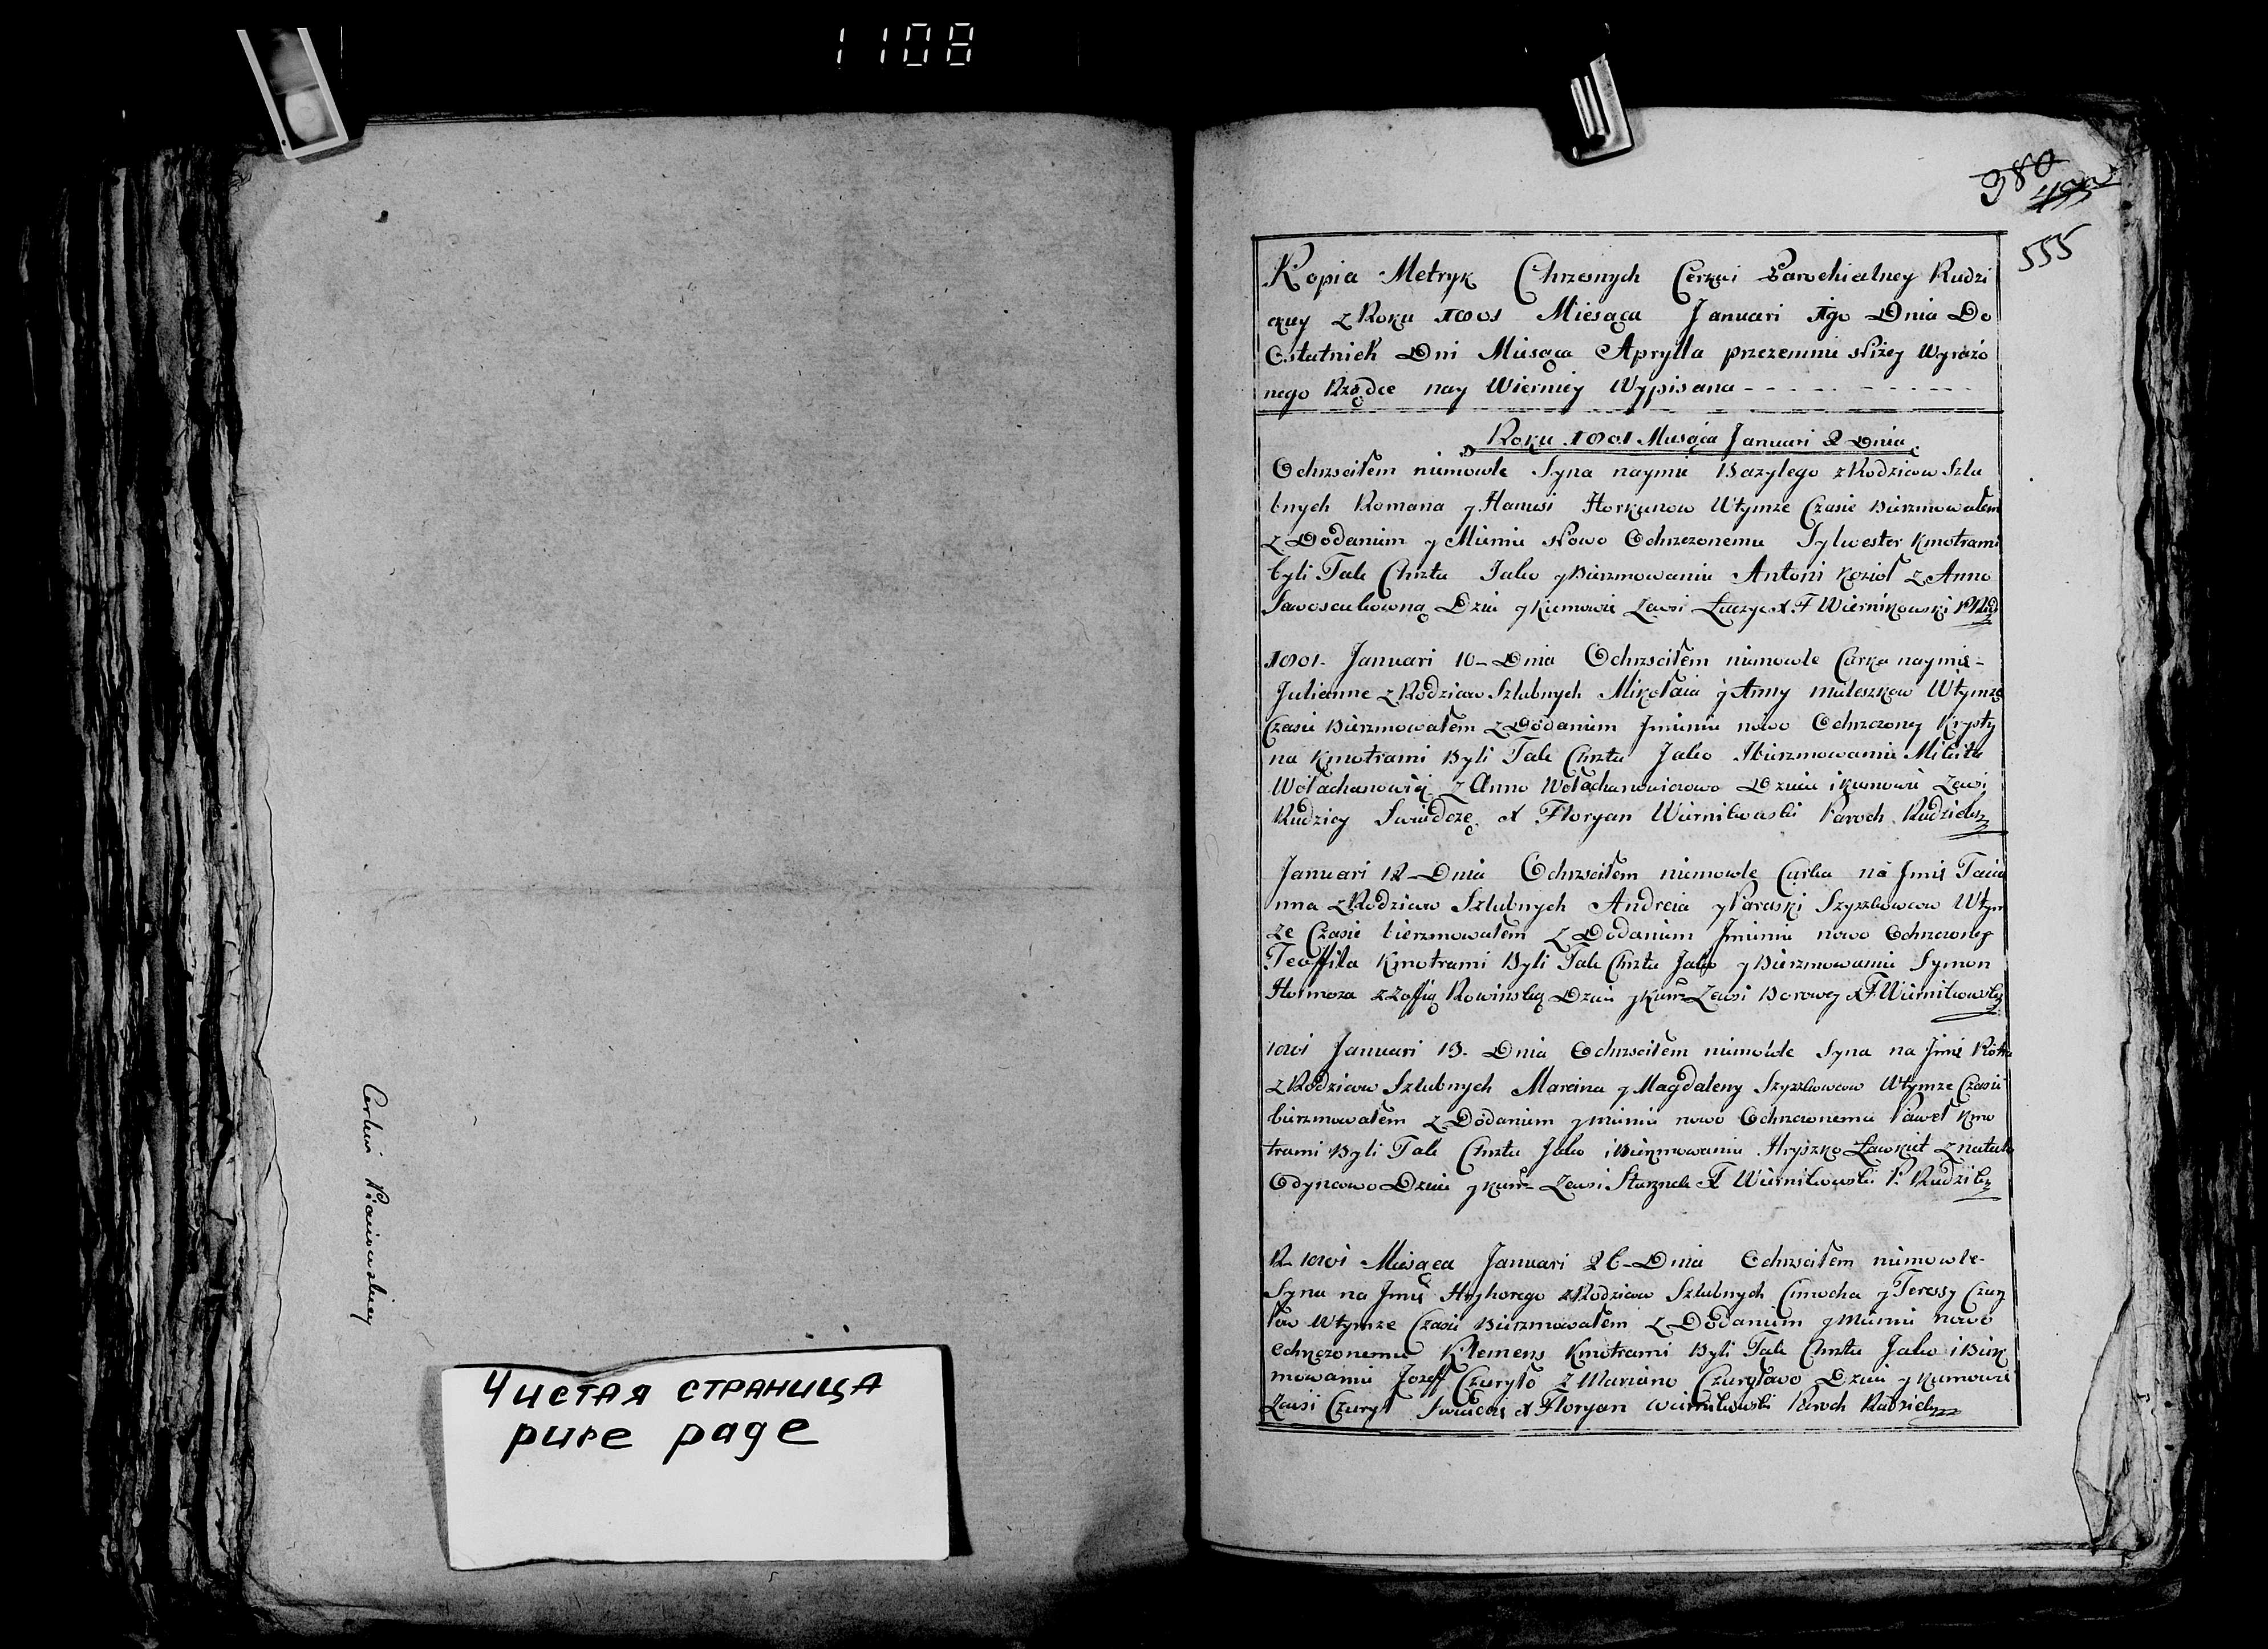 1108
Cerkwi Piaiowskiey
Чистая страница
pure page
980
555
Kopia Metryk Chrzesnych Cerkwi Parochialney Rudzi
ckiey z Roku 1801 Miesąca Januari 1go Dnia Do
Ostatnich Dni Miesąca Aprylla przezemnie Niżey Wyrażo
nego Rządce nay Wierniey Wypisana - - - - - - - -
Roku 1801 Miesąca Januari 2 Dnia
Ochrzsciłem niemowle Syna naymie Bazylego z Rodzicow Szlu
bnych Romana y Hanusi Horkunow Wtymze Czasie Bierzmowałem
z Dodaniem y Mienia Nowo Ochrzczonemu Sylwester Kmotrami
byli Tak Chrztu Jako y Bierzmowania Antoni Kozioł z Anno
Dzia y Kumowie Zewsi x. F Wiernikowski P Rudz
1801. Januari 10 - Dnia Ochrzsciłem niemowle Curka naymie -
Julianne z Rodzicow Szlubnych Mikołaia y Anny Mileszkow Wtymze
Czasie Bierzmowałem z Dodaniem Jmienia nowo Ochrzczoney Krysty
na Kmotrami Byli Tak Chrztu Jako Ibierzmowania Mikita
Wołachanowicz z Anno Wołachanowiczowo Dziciu i kumowie Zewsi
Rudzicy Swiadczę x Floryan Wiernikowski Paroch Rudzicky
Januari 12 - Dnia Ochrzsciłem niemowle Curka na Jmie Tacia
nna z Rodzicow Szlubnych Andreia y Paraski Szyszkowcow Wtym
ze Czasie bierzmowałem z Dodaniem Jmienia nowo Ochrzczoney
Teoffila Kmotrami Byli Tak Chrztu Jako y Bierzmowania Symon
z Zoffią Rowinską Dzia y kum Zewsi Borowey x F Wiernikowsky
1801 Januari 13. Dnia Ochrzsciłem niemowle Syna na Jmie
z Rodzicow Szlubnych Marcina y Magdaleny Szyszkowcow Wtymze Czasie
bierzmowałem z Dodaniem ymienia nowo Ochrzczonemu Paweł Kmo
trami Byli Tak Chrztu Jako i Bierzmowania Hryszko Ławkiet z natal
Odyncowo Dzia y kum Zewsi x F Wiernikowski P. Rudzicky
R 1801 Miesąca Januari 26 - Dnia Ochrzsciłem niemowle -
Syna na Jmie Hryhorego z Rodzicow Szlubnych Cimocha y Teressy Czury
łow Wtymze Czasie Bierzmowałem z Dodaniem y Mienia nowo
ochrzczonemu Klemens Kmotrami Byli Tak Chrztu Jako i Bierz
mowania Jozeff Czuryło z Mariano Czuryłowo Dzia y kumowie
Zewsi Czurył Swiadczę x Floryan Wiernikowski Paroch Rudzicky